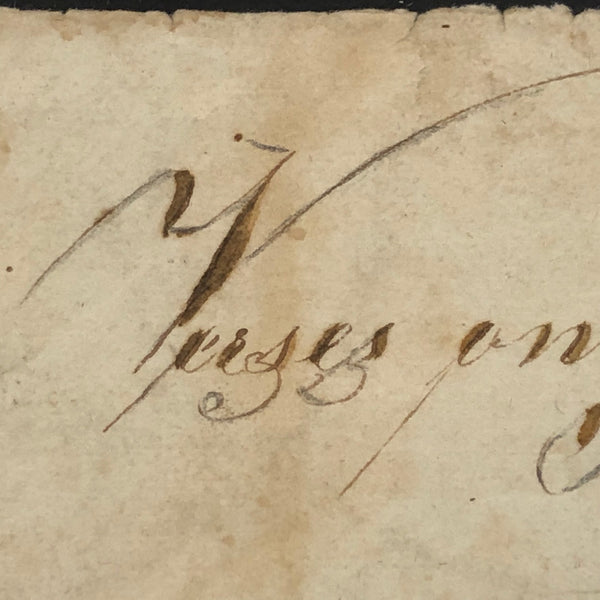 Verses on